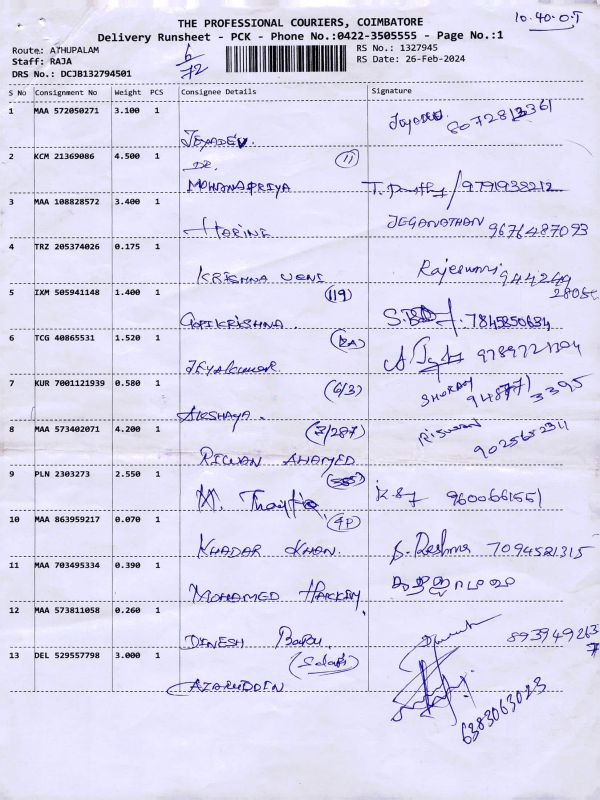 10.40.0.T
THE PROFESSIONAL COURIERS, COIMBATORE
Delivery Runsheet - PCK - Phone No.:0422-3505555 - Page No.:1
Route: ATHUPALAM
6/72
RS No.: 1327945
Staff: RAJA
RS Date: 26-Feb-2024
DRS No.: DCJB132794501
S No Consignment No Weight PCS Consignee Details Signature
1 MAA 572050271 3.100 1
JEYADEV.
2 KCM 21369086 4.500 1
(11)
DR.
MOHANAPRIYA
9791938212
3 MAA 108828572 3.400 1
HARINE
JEGANATHAN 9676487093
4 TRZ 205374026 0.175 1
KRISHNA VENI
Rajeswari
5 IXM 505941148 1.400 1
(119)
GOPIKRISHNA.
7845350634
6 TCG 40865531 1.520 1
(2A)
JEYAKUMAR
9789721304
7 KUR 7001121939 0.580 1
(6/3)
AKSHAYA.
94877 3395
8 MAA 573402071 4.200 1
(3/287)
RIZWAN AHAMED
RISWAN
9025652311
9 PLN 2303273 2.550 1
9600661551
10 MAA 863959217 0.070 1
(4P)
KHADAR KHAN.
S. Reshma 7094521315
11 MAA 703495334 0.390 1
MOHAMED HAKKIM.
12 MAA 573811058 0.260 1
DINESH BABU
8939492637
13 DEL 529557798 3.000 1
AZARUDDEN
6383063023